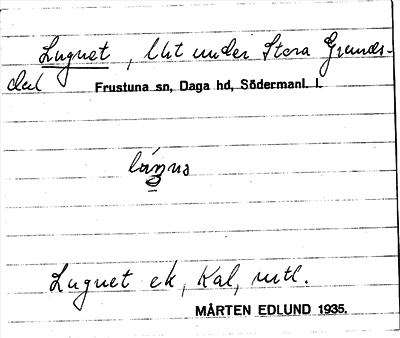 Lugnet, lht under Stora Grunds-
dal Frustuna sn, Daga hd, Södermanl. l.
Lugnet ek, Kal, mtl.
MÅRTEN EDLUND 1935.